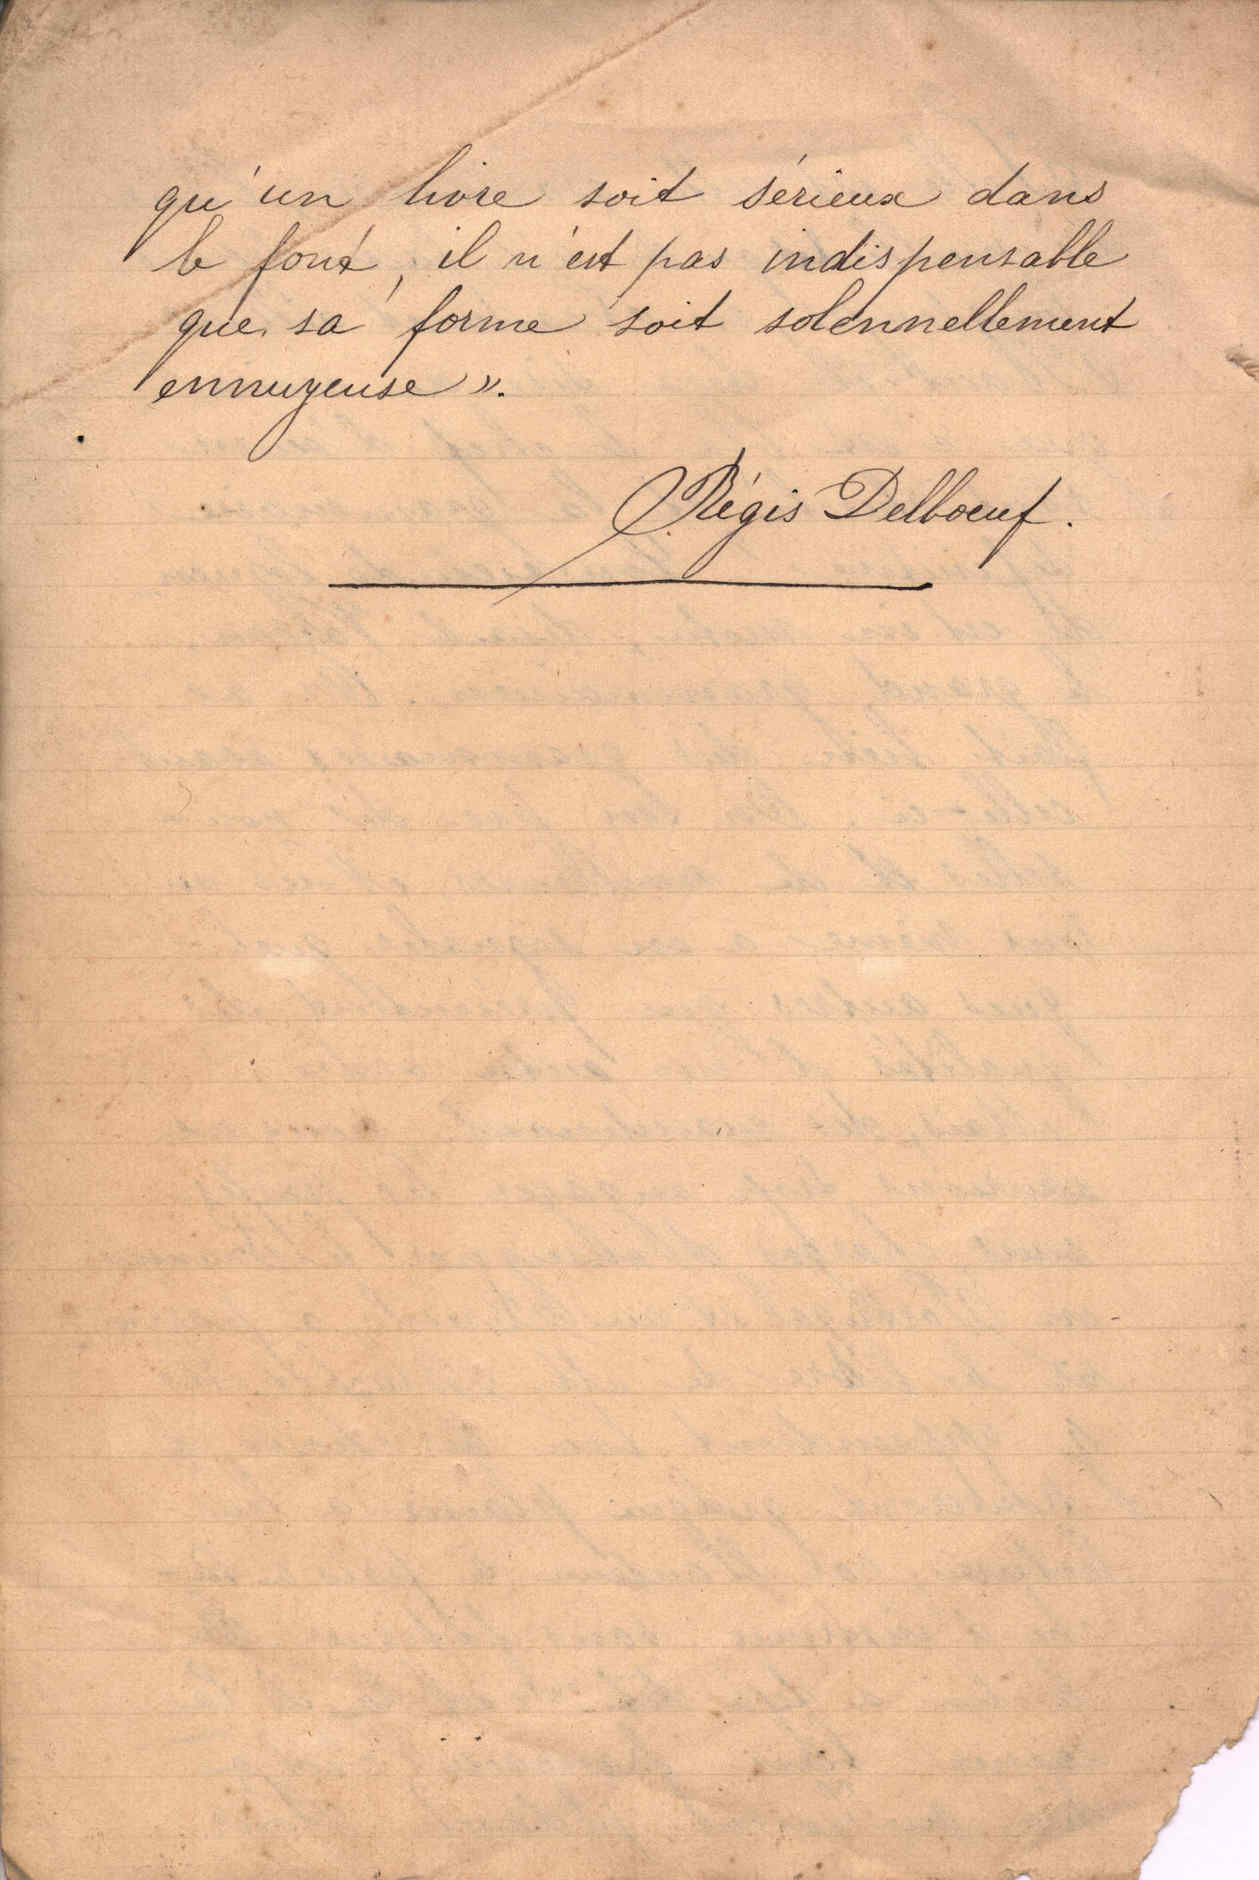 qu'un livre soit sérieux dans
le fond, il n'est pas indispensable
que sa forme soit solennellement
ennuyeuse ».
Régis Delbœuf.